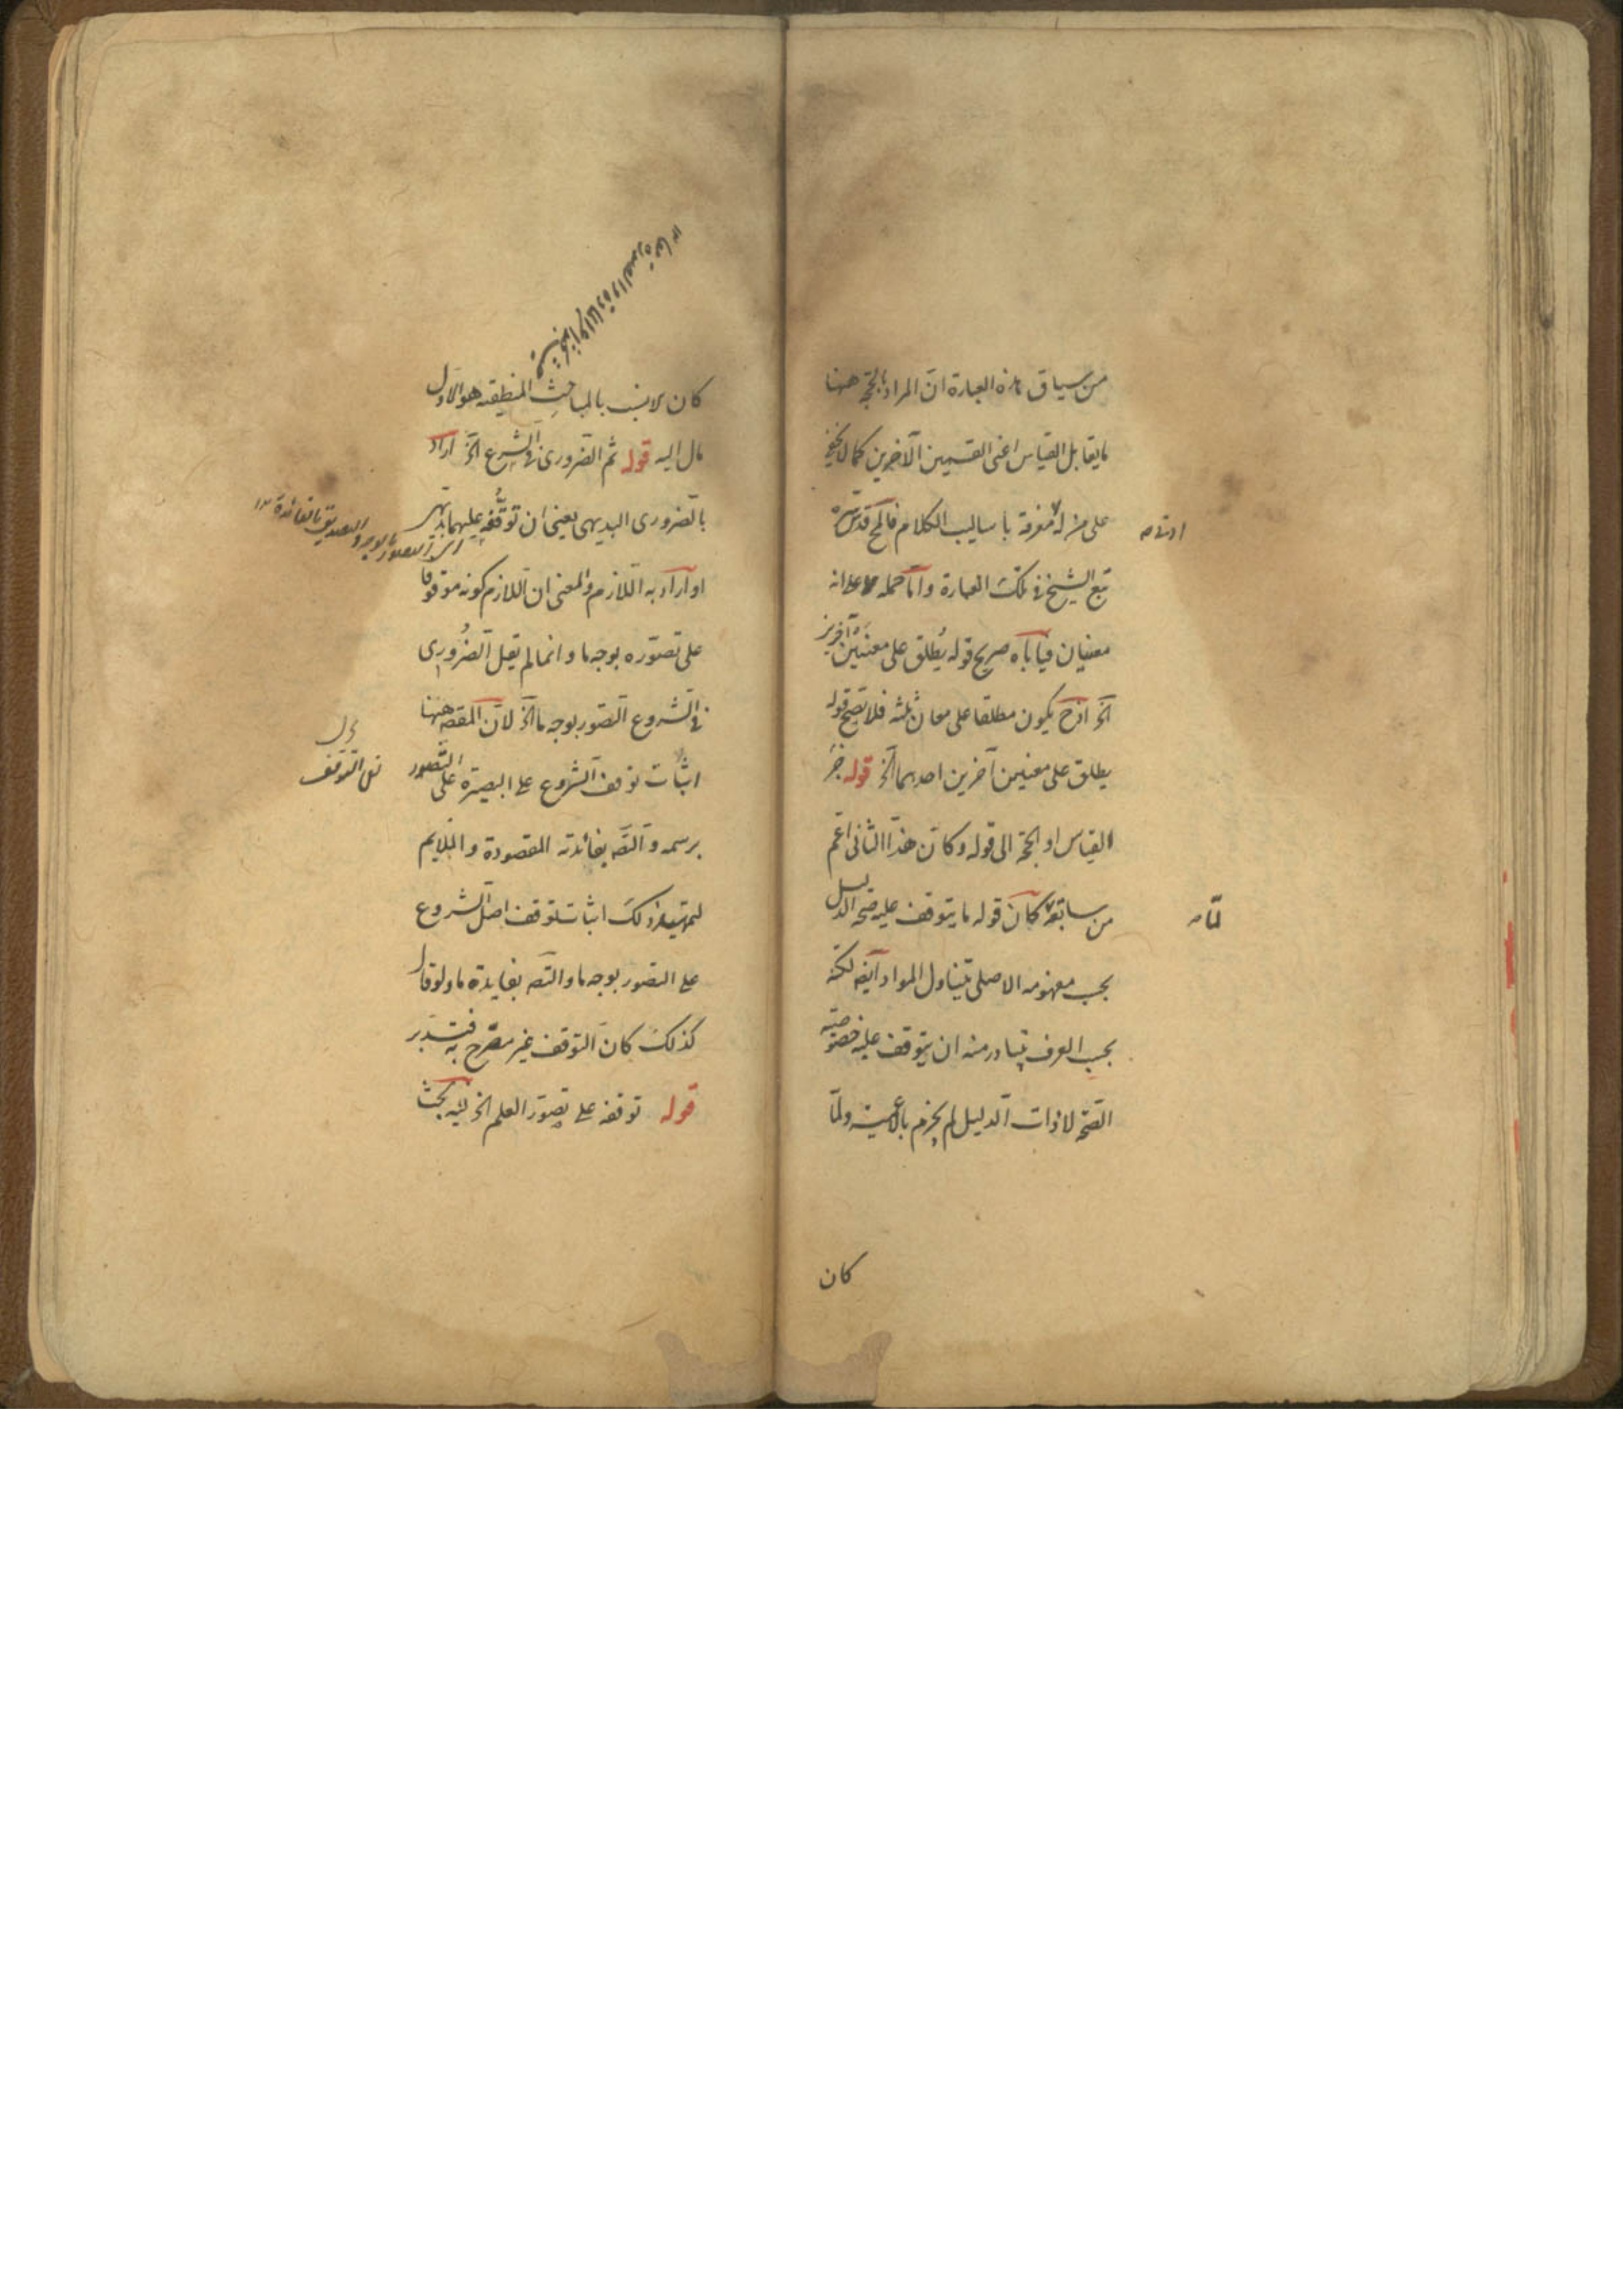 من سياق هذه العبارة ان المراد بالحجة ههنا
ما يقابل القياس اعنى القسمين الآخرين كما لا يخفى
على من له معرفة باساليب الكلام فالمح قدس سره
تبع الشيخ فى تلك العبارة واما حمله على انه
معنيان فيأباه صريح قوله يُطلق على معنيين آخرين
آلخ اذ ح يكون مطلقا على معان ثلثة فلا تصح قوله
يطلق على معنيين آخرين احدهما آلخ قوله جزء
القياس او الحجة الى قوله وكان هذا الثانى اعم
من سابقه كان قوله ما يتوقف عليه صحة الدليل
بحسب مفهومه الاصلى يتناول المواد ايضه لكنه
بحسب العرف يتبادر منه ان يتوقف عليه خصوصية
الصحة لا ذات الدليل لم يجزم بالاعمية ولمّا
لمّا
كان
كان لانسب بالمباحث المنطقيه هو الاول
مال اليه قوله ثم الضرورى فى الشروع آلخ اراد
بالضرورى البديهى يعنى ان توقّفه عليهما بديهى
او اراد به اللازم والمعنى ان اللازم كونه موقوفا
على تصوّره بوجه ما وانما لم يقل الضرورى
فى الشروع التصور بوجه ما آلخ لان المقصه ههنا
اثبات توقف الشروع على البصيرة على التصور
برسمه والتصه بفائدته المقصودة والملايم
لتمهيد ذلك اثبات توقف اصل الشروع
على التصور بوجه ما والتصه بفايدة ما ولو قال
كذلك كان التوقف غير مصرح به فتدبر
قوله توقفه على تصور العلم آلخ فيه بحث
والتصديق بالفائدة ١٢
التوقف